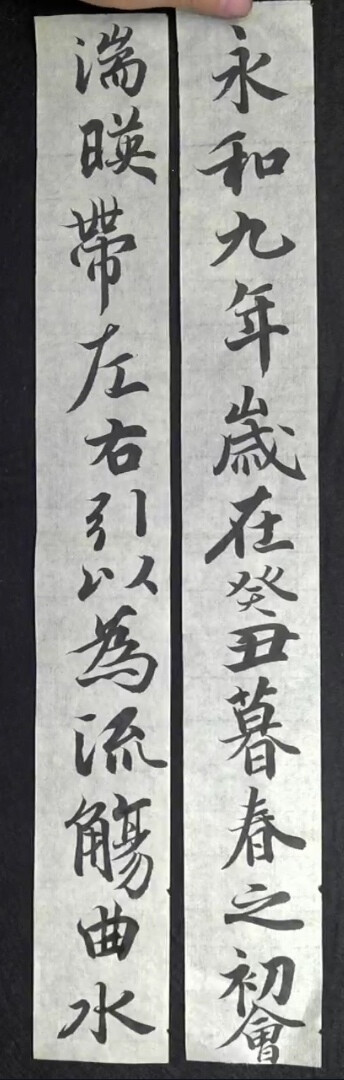 永和九年歲在癸丑暮春之初會
湍暎帶左右引以為流觴曲水